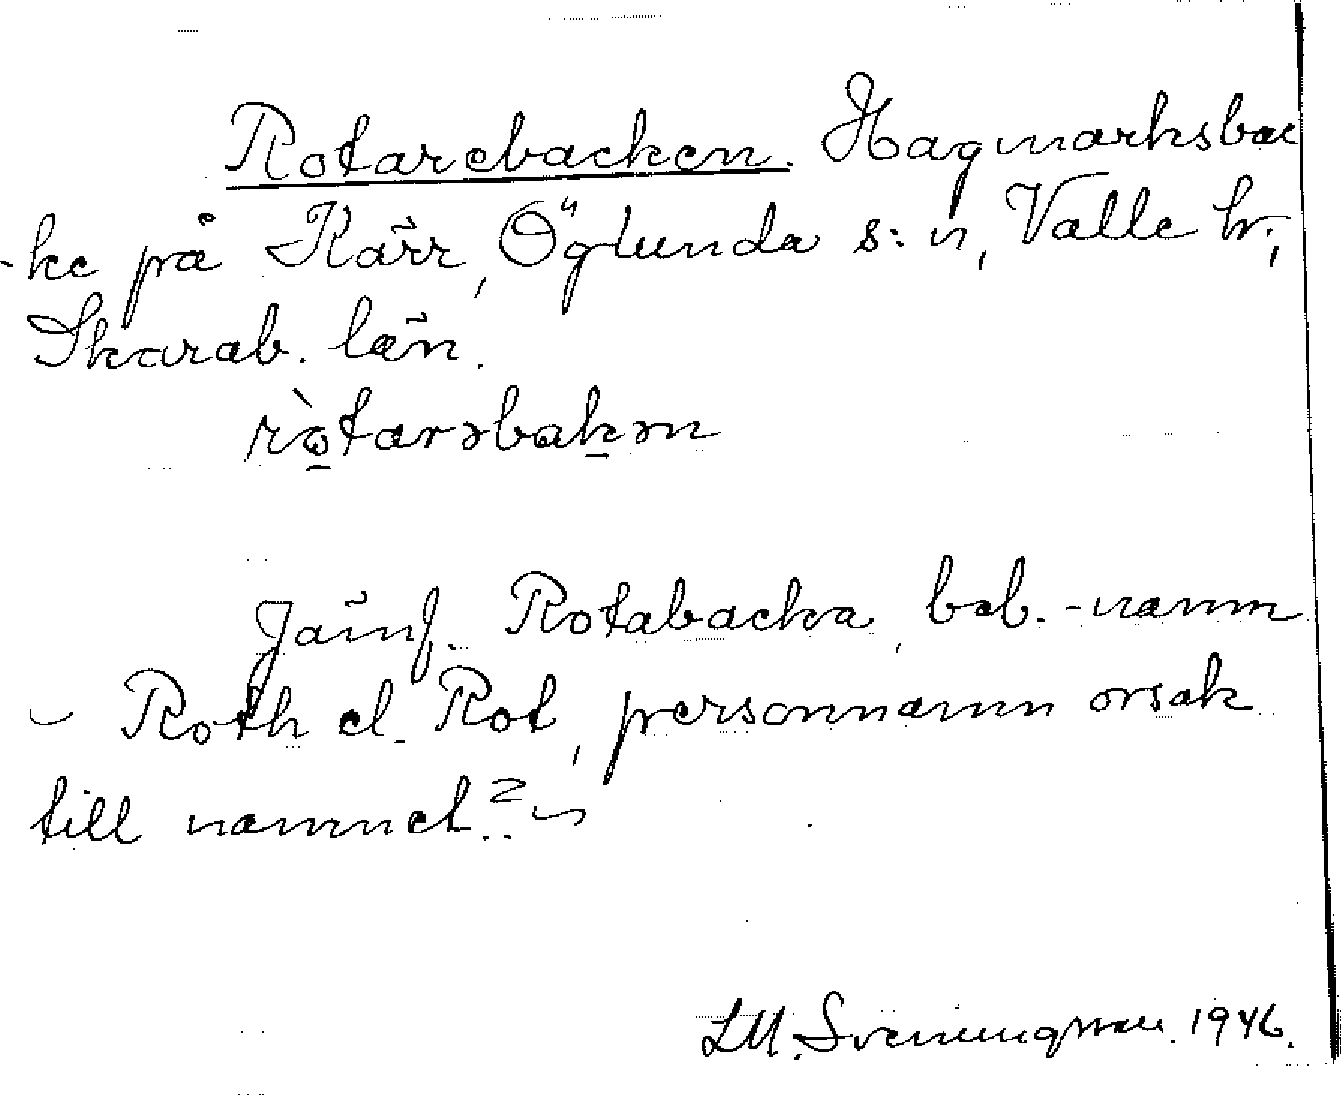 Rotarebacken. Hagmarksbac
-ke på Kärr, Öglunda s:n, Valle hr,
Skarab. län.
rò̱tarəbaḵən
Jämf. Rotabacka, beb.-namn
~ Roth el. Rot, personnamn orsak
till namnet? ~
LM. Svenungsson. 1946.